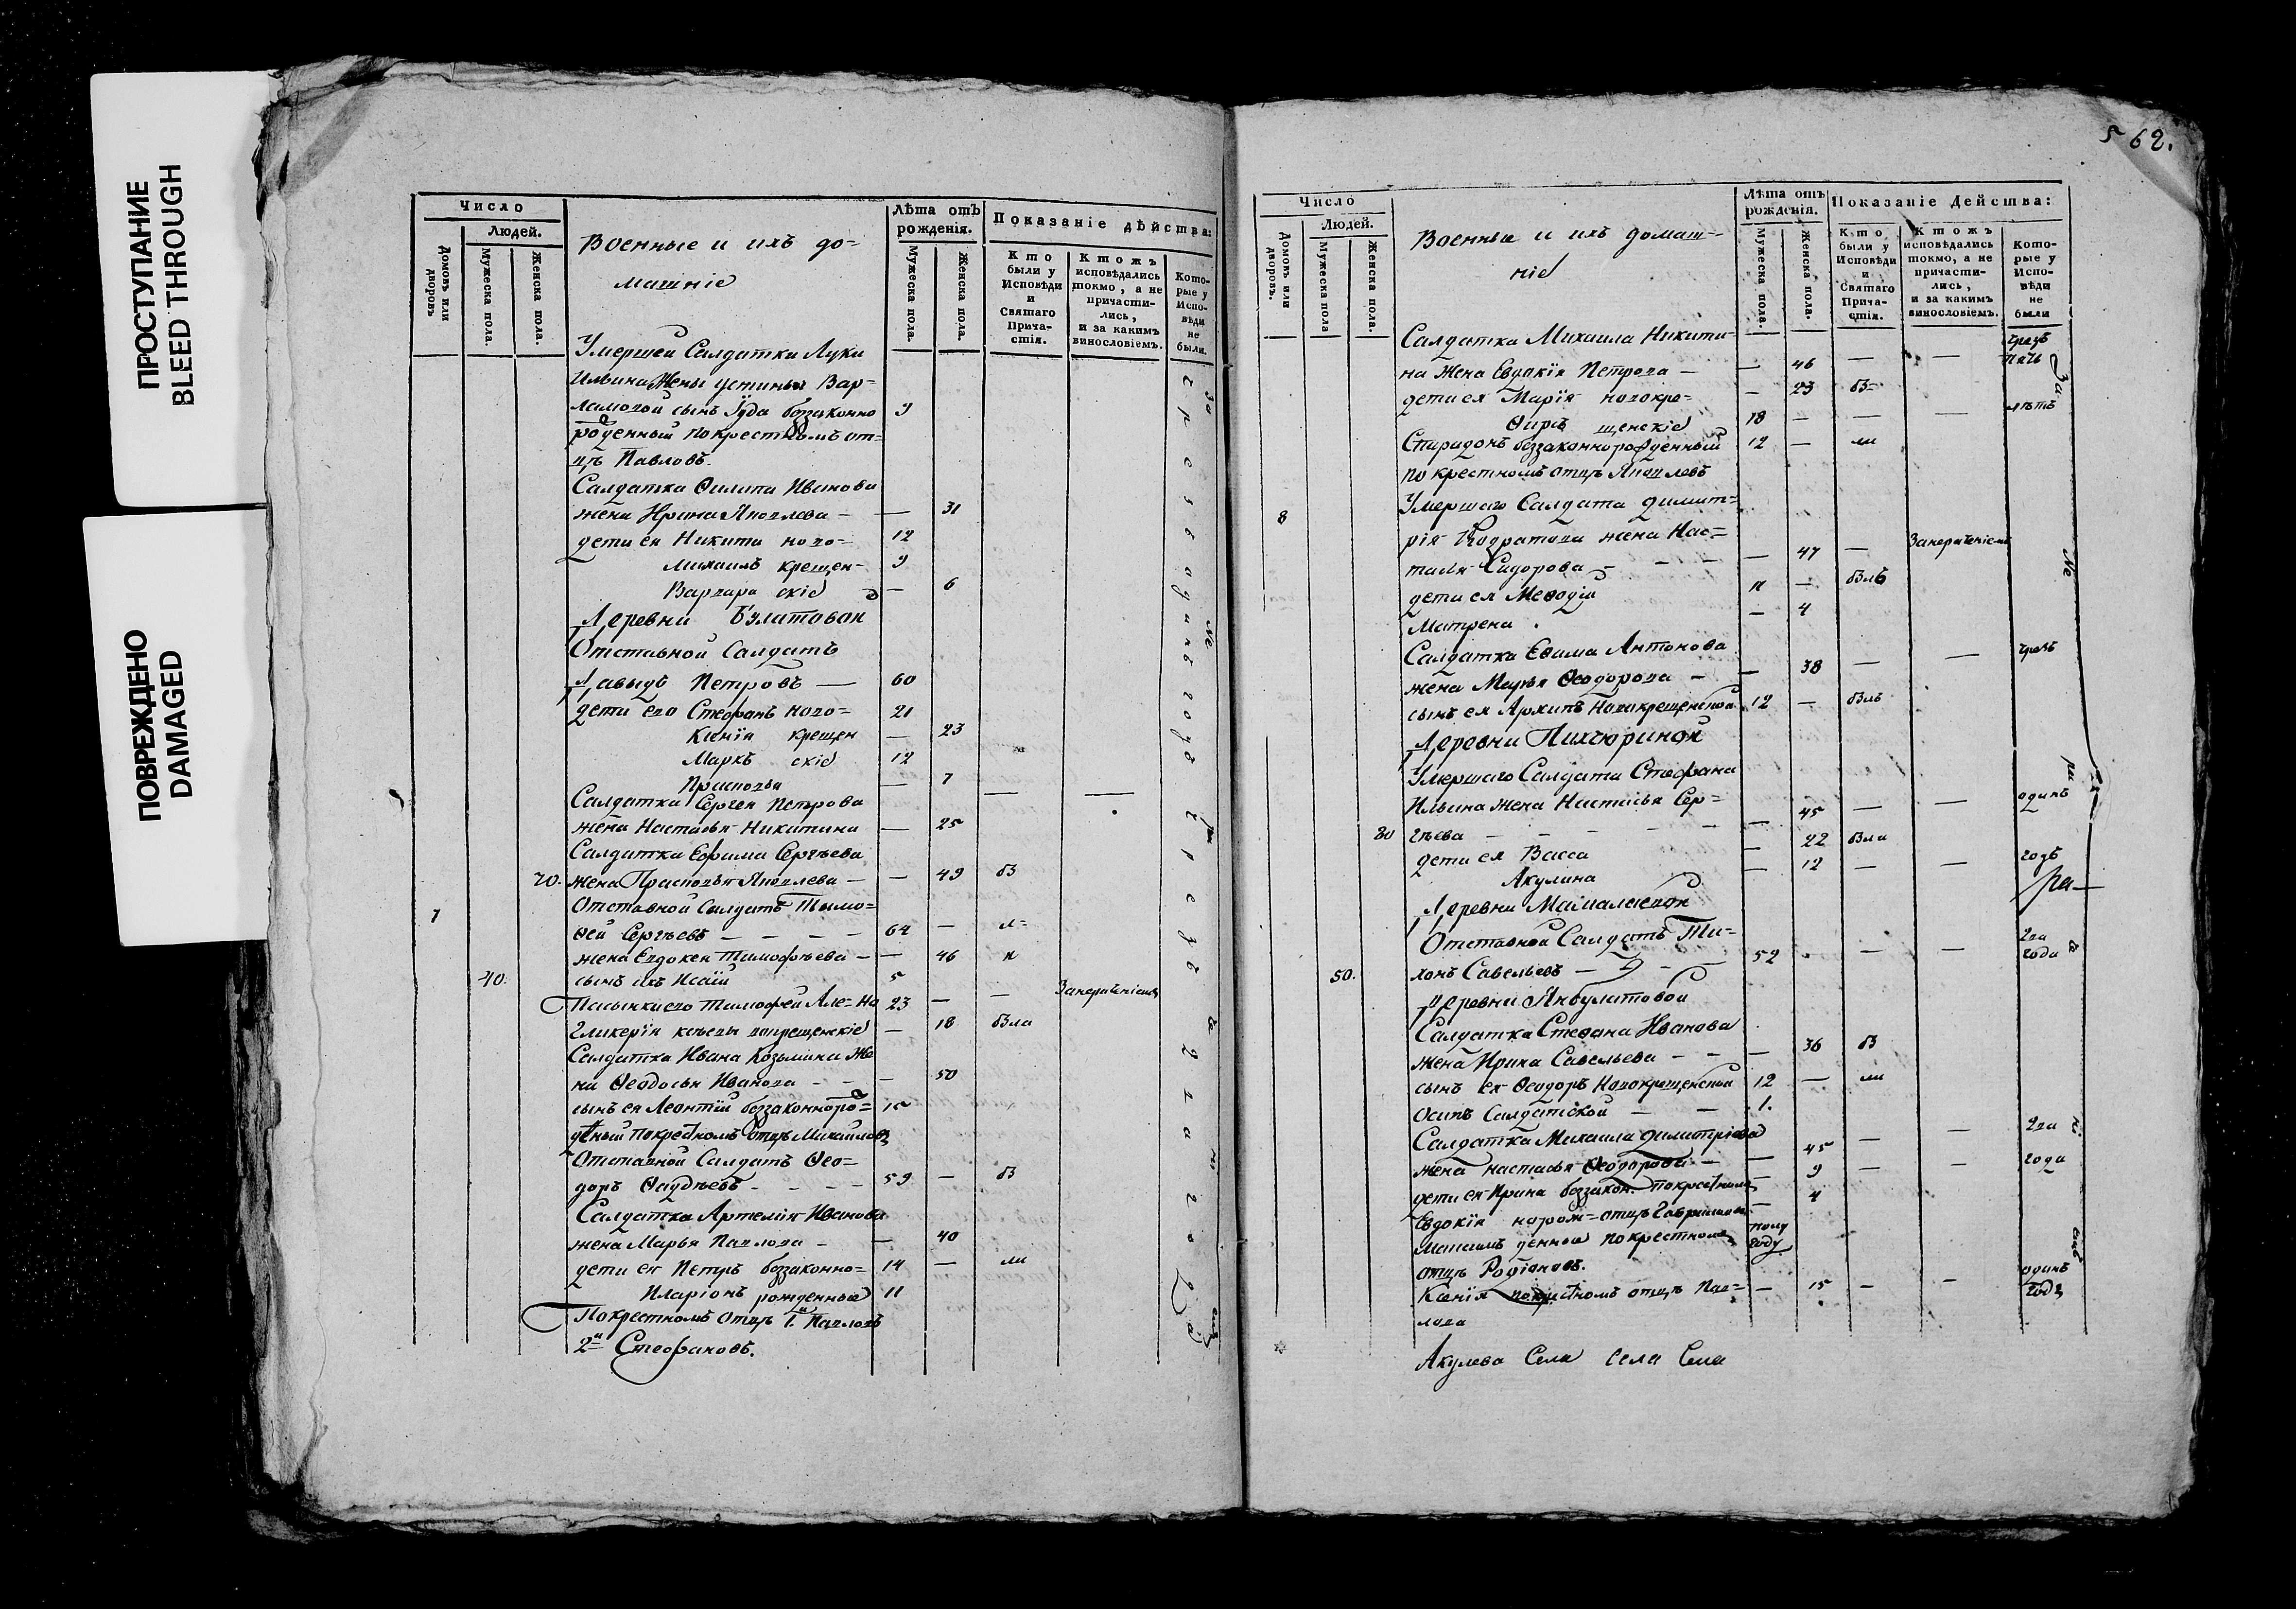 ПРОСТУПАНИЕ
BLEED THROUGH
ПОВРЕЖДЕНО
DAMAGED
Число
Людей.
Домовъ или дворовъ
Мужеска пола.
Женска пола.
Военные и ихъ до=
машніе
Лѣта отъ рожденія.
Мужеска пола.
Женска пола.
Показаніе дѣйства:
Кто были у Исповѣди и Святаго Прича-стія.
Ктожъ исповѣдались токмо, а не причасти-лись, и за какимъ винословіемъ.
Кото-рые у Испо-вѣди не были.
Умершей Салдатки Луки
Ильина жены Устиньи Вар=
ламовой сынъ Іуда беззаконно 9
рожденный по крестномъ от=
цѣ Павловъ.
Салдатка Филипа Иванова
жена Ирина Яковлева — — 31
дети ея Никита ново= 12
Михаилъ крещен= 9
Варвара скіе — 6
Деревни Булатовой
Отставной Салдатъ
Давыдъ Петровъ — 60
дети его Стефанъ ново= 21
Ксенія крещен — 23
Маркъ скіе 12
Прасковья — 7
Салдатка Сергея Петрова — —
жена Настасья Никитина — 25
Салдатка Ефима Сергѣева
70. жена Прасковья Яковлева — — 49 бз
7 Отставной Салдатъ Тимо=
фей Сергѣевъ — — — — 64 — л=
жена Евдокея Тимофѣева — — 46 и
40. сынъ ихъ Исаій 5
Пасынки его Тимофей Але= но 23 — — Занерачѣніемъ
Гликерія ксѣевы вокрещенскіе — 18 была
Салдатка Ивана Козьмина же
на Феодосья Иванова - - — 50
сынъ ея Леонтій беззаконноро= 15
денный по крестномъ отцѣ Михайловъ
Отставной Салдатъ Фео=
доръ Фадѣевъ - - - — 59 — бз
Салдатка Артемія Иванова
жена Марья Павлова - — 40
дети ея Петръ беззаконно= 14 — ли
Иларіонъ рожденные 11
По крестномъ отцѣ 1й Павловъ
2й Стефановъ.
за чрезъ одинъ годъ чрезъ два года
562.
Число
Людей.
Домовъ или дворовъ.
Мужеска пола
Женска пола.
Военные и ихъ домаш=
ніе
Лѣта отъ рожденія.
Мужеска пола.
Женска пола.
Показаніе Дейсmва:
Кто были у Исповѣди и Святаго Прича-стія.
Ктожъ исповѣдались токмо, а не причасти-лись, и за какимъ винословіемъ.
Кото-рые у Испо-вѣди не были
Салдатка Михаила Никити= чрезъ
на жена Евдокія Петрова — — 46 — — пять
дети ея Марія новокре= — 23 бз= лѣтъ
Фирсъ щенскіе 18 — — —
Спиридонъ беззаконнорожденный 12 — ли
по крестномъ отцѣ Яковлевъ
8 Умершаго Салдата Димит=
рія Кодратова жена Нас= Занерачѣніемъ
тасья Сидорова - - — — 47 —
дети ея Мефодій 11 — былъ
Матрена — 4
Салдатка Ефима Антонова чрезъ
жена Марья Феодорова — — 38 — —
сынъ ея Архипъ Новокрещенской 12 — былъ
Деревни Пихтюриной
Умершаго Салдата Стефана
Ильина жена Настасья Сер= одинъ
80 гѣева - - - - — 45 — —
дети ея Васса — 22 была
Акулина — 12 — — годъ
Деревни Мамалаевой
Отставной Салдатъ Ти= два
50. хонъ Савельевъ — 52 . — — года
Деревни Янбулатовой
Салдатка Стефана Иванова
жена Ирина Савельева - — — 36 бз
сынъ ея Феодоръ Новокрещенской 12 — ли
Осипъ Салдатской — — 1.
Салдатка Михаила Димитріева два
жена Настасья Феодорова — — 45 — — года
дети ея Ирина беззакон. по крестномъ — 9 — —
Евдокія норож= отцѣ Гавриловы — 4
Максимъ денные по крестномъ полу году
отцѣ Родіоновъ. одинъ
Ксенія по крестномъ отцѣ Пав= — 15 — — годъ
лова
Акулева Села Села Села